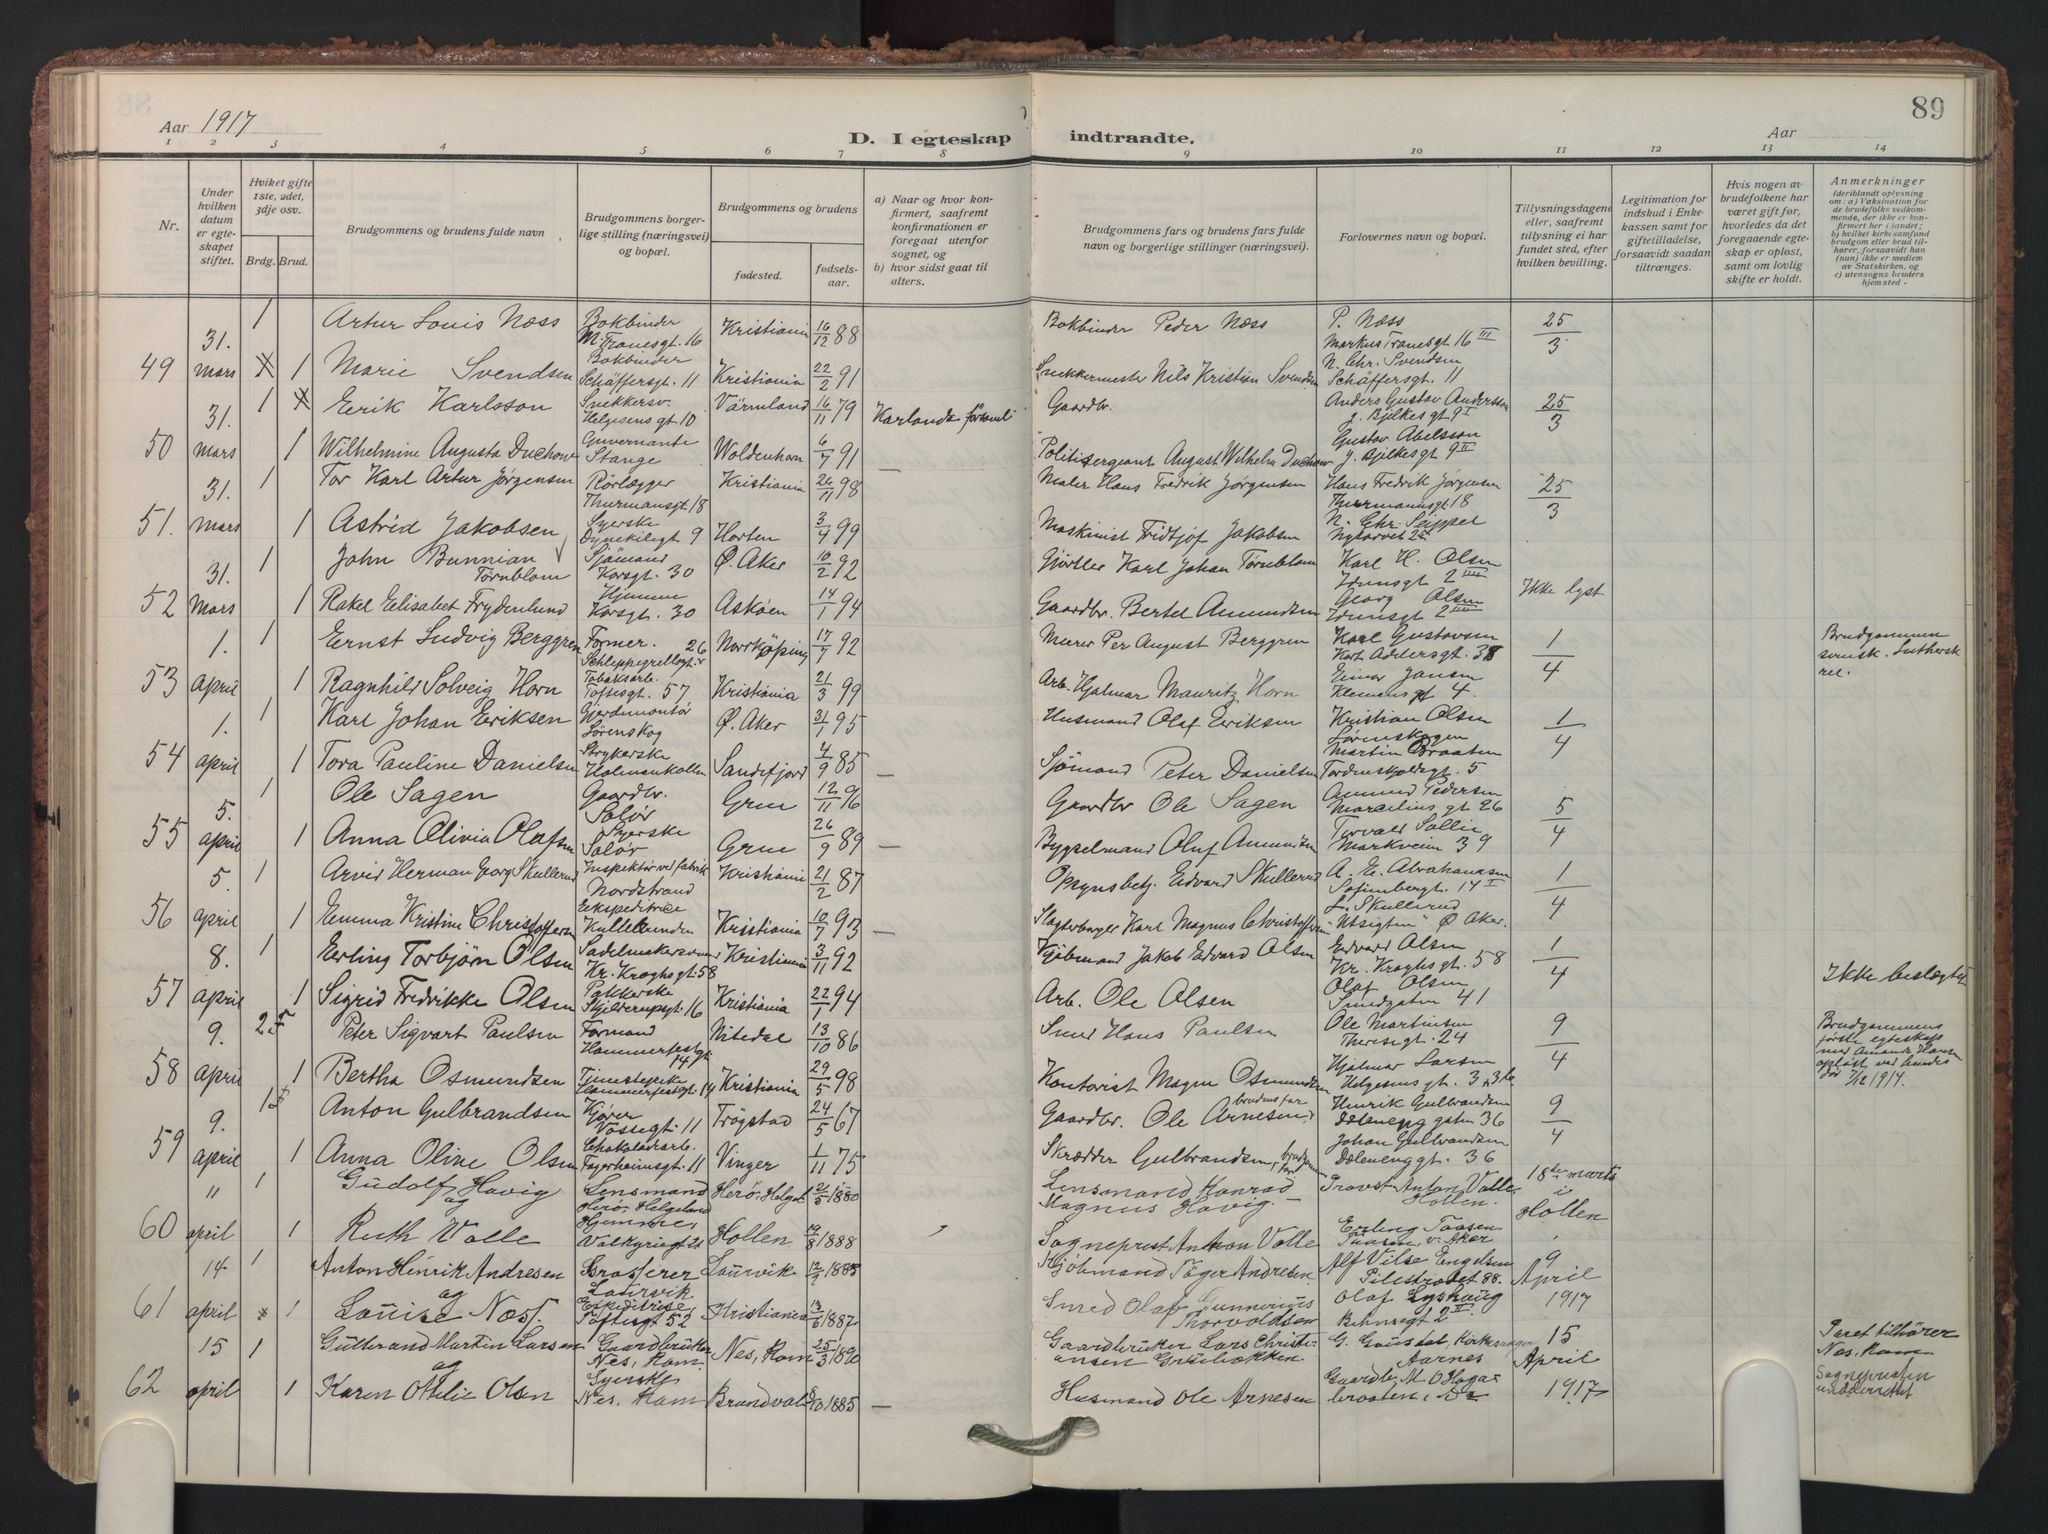 Aar 1917
D. I egteskap indtraadte.
Aar
89
1 2 3 4 5 6 7 8 9 10 11 12 13 14
Nr.
Under hvilken datum er egteskapet stiftet.
Hviket gifte 1ste, 2det, 3dje osv.
Brdg. Brud.
Brudgommens og brudens fulde navn
Brudgommens borgerlige stilling (næringsvei) og bopæl.
Brudgommens og brudens
fødested. fødselsaar.
a) Naar og hvor konfirmert, saafremt konfirmationen er foregaat utenfor sognet, og
b) hvor sidst gaat til alters.
Brudgommens fars og brudens fars fulde navn og borgerlige stillinger (næringsvei).
Forlovernes navn og bopæl.
Tillysningsdagene eller, saafremt tillysning ei har fundet sted, efter hvilken bevilling.
Legitimation for indskud i Enkekassen samt for giftetilladelse, forsaavidt saadan tiltrænges.
Hvis nogen av brudefolkene har været gift før, hvorledes da det foregaaende egteskap er opløst, samt om lovlig skifte er holdt.
Anmerkninger (deriblandt oplysning om: a) Vaksination for de brudefolks vedkommende, der ikke er konfirmert her i landet; b) hvilket kirkesamfund brudgom eller brud tilhører, forsaavidt han (hun) ikke er medlem av Statskirken, og c) utensogns bruders hjemsted.
49 31. Mars 1 Artur Louis Næss Bokbinder M. Tranesgt. 16 Kristiania 16/12 88 Bokbinder Peder Næss P. Næss Markus Tranesgt 16 III 25/3
1 Marie Svendsen Bokbinder Schäffersgt. 11 Kristiania 22/2 91 Snekkermester Nils Kristian Svendsen N. Chr. Svendsen Schäffersgt. 11
50 31. Mars 1 Erik Karlsson Snekkersv. Helgesensgt 10 Värmland 16/11 79 Karlanda församl. Gaardbr. Anders Gustav Andersson J. Bjelkesgt 9 I 25/3
1 Wilhelmine Augusta Duchow Guvernante Stange Woldenhorn 6/7 91 — Politisergeant August Wilhelm Duchow Gustav Abelsson J. Bjelkesgt 9 II
51. 31. Mars 1 Tor Karl Artur Jørgensen Rørlægger Thurmansgt. 18 Kristiania 26/11 98 Maler Hans Fredrik Jørgensen Hans Fredrik Jørgensen Thurmannsgt. 18 25/3
1 Astrid Jakobsen Syerske Dynekilegt 9 Horten 3/4 99 Maskinist Fridtjof Jakobsen N. Chr. Seippel Nytorvet 25
52 31. Mars 1 John Bunnian Törnblom Sjömand Korsgt. 30 Ø. Aker 10/2 92 Gjörtler Karl Johan Törnblom Karl H. Olsen Idunsgt 2 III Ikke lyst
1 Rakel Elisabet Frydenlund Hjemme Korsgt. 30 Askøen 14/1 94 Gaardbr. Bertel Amundsen Georg Olsen Idunsgt 2 III
53 1. april 1 Ernst Ludvig Berggren Former. Schleppegrellsgt. 26 Norrköping 17/7 92 Murer Per August Berggren Karl Gustavsen Kort Adelersgt. 38 1/4 Brudgommen svensk. Luthersk rel.
1 Ragnhild Solveig Horn Tobaksarb. Toftesgt. 57 Kristiania 21/3 99 Arb. Hjalmar Mauritz Horn Einar Jansen Klemensgt 4.
54 1. april 1 Karl Johan Eriksen Gjerdemontör Lørenskog Ø. Aker 31/1 95 Husmand Olaf Eriksen Kristian Olsen Lørenskogen 1/4
1 Tora Pauline Danielsen Strykerske Holmenkollen Sandefjord 4/9 85 — Sjömand Peter Danielsen Martin Braaten Tordenskjoldsgt. 5
55 5. april 1 Ole Sagen Gaardbr. Solör Grue 12/11 96 Gaardbr Ole Sagen Amund Pedersen Marcelius gt 26 5/4
1 Anna Olivia Olafsen Syerske Solör Grue 26/9 89 — Bygselmand Oluf Amundsen Torvald Sollie Markveien 39
56 5. april 1 Arvid Herman Georg Skullerud Inspektör ved fabrik Nordstrand Kristiania 21/2 87 Opsynsbetj. Edvard Skullerud A. E. Abrahamsen Sofienbergt. 14 I 1/4
1 Emma Kristine Christoffersen Ekspeditrice Kristiania 10/7 93 — Slagterborger Karl Magnus Christoffersen L. Skullerud "Utsigten" Ø Aker.
57 8. april 1 Erling Torbjørn Olsen Sadelmakersvend Kr. Kroghsgt. 58 Kristiania 3/11 92 Kjöbmand Jakob Edvard Olsen Edvard Olsen Kr. Kroghsgt. 58 1/4
1 Sigrid Fredrikke Olsen Pakkerske Skjelderupsgt. 16 Kristiania 22/1 94 Arb. Ole Olsen Olaf Olsen Smedgaten 41 Ikke beslægtet
58 9. april 2. Peter Sigvart Paulsen Formand Hammerfestgt. 14 Nitedal 13/10 86 Smed Hans Paulsen Ole Martinsen Theresegt. 24 9/4 Brudgommens første egteskap med Amanda Hansen opløst ved hendes død 1917.
1 Bertha Osmundsen Tjenestepike Hammerfestgt. 14 Kristiania 29/5 98 Kontorist Magn Osmundsen Hjalmar Larsen Helgesens gt.
59 9. april 1 Anton Gulbrandsen Kjører Vossegt. 11 Trøgstad 24/5 67 Gaardbr. Ole Arnesen, brudens far Henrik Gulbrandsen Dælenenggaten 36 9/4
1 Anna Oline Olsen Chokoladearb. Fagerheimsgt. 11 Vinger 1/11 75 Skrædder Gulbrandsen, brudgommens far Johan Gulbrandsen Dælenenggt. 36
60 " april 1 Gudolf Havig og Lensmand Herö, Helgeland Herö, Helgel. 21/5 1880 Lensmand Konrad Magnus Havig. Provst Anton Valle, Hollen. 18de marts i Hollen
1 Ruth Valle Hjemme, Valkyriegt 21 Hollen 19/8 1888 Sogneprest Anton Valle Erling Taasen Taasen, v. Aker
61 14 april 1 Anton Hinrik Andresen og Laurvik Laurvik 12/9 1885 Kjöbmand Andresen. Alf Vilse Engelsen Pilestrædet 88. 9 April 1917
1 Louise Næss. Expeditrise, Toftesgt 52 Kristiania 13/6 1887 Smed Olaf Gunnerius Thorvoldsen Olaf Lyshaug Behnsgt 2 II.
62 15 april 1 Gulbrand Martin Larsen og Gaardbruker Nes, Rom. Nes, Rom. 25/3 1890 Gaardbruker Lars Christiansen Grinbækken. Aarnes 15 April 1917 Paret tilhører Nes, Rom. Sognepresten underrettet
1 Karen Othilie Olsen Syerske Nes, Rom Brandval 1885 — Husmand Ole Arnesen